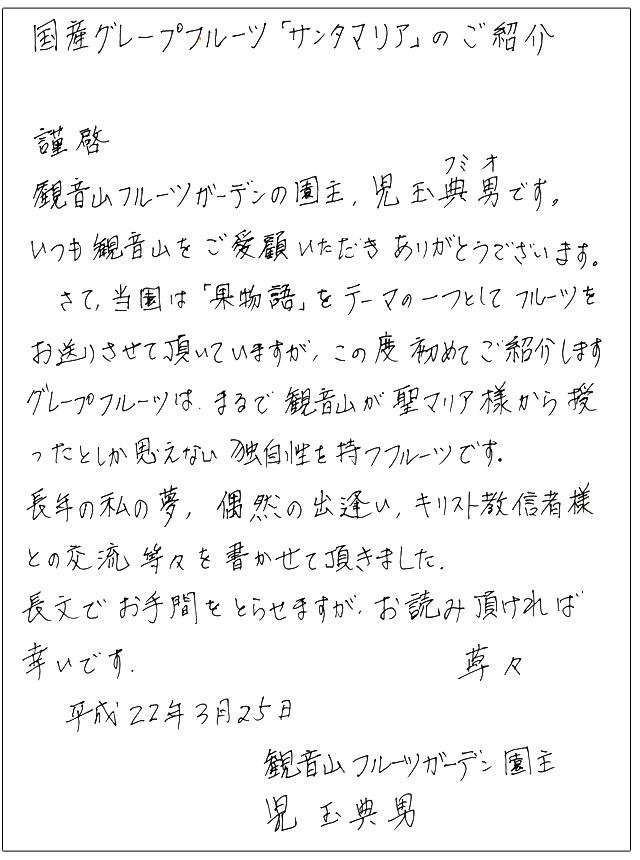 国産グレープフルーツ「サンタマリア」のご紹介
謹啓
フミオ
観音山フルーツガーデンの園主，児玉典男です。
いつも観音山をご愛顧いただきありがとうございます。
さて，当園は「果物語」をテーマの一つとしてフルーツを
お送りさせて頂いていますが，この度初めてご紹介します
グレープフルーツは，まるで観音山が聖マリア様から授
ったとしか思えない独自性を持つフルーツです．
長年の私の夢，偶然の出逢い，キリスト教信者様
との交流等々を書かせて頂きました．
長文でお手間をとらせますが，お読み頂ければ
幸いです． 草々
平成22年3月25日
観音山フルーツガーデン園主
児玉典男